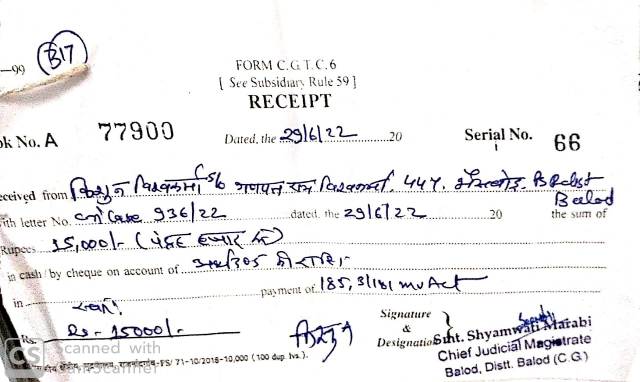 —99
B17
FORM C.G.T.C. 6
[ See Subsidiary Rule 59 ]
RECEIPT
ok No. A 77900 Dated, the 29/6/22 20 Serial No. 66
eceived from S/o गणपत राम विश्वकर्मा,
Balod
ith letter No. Cri Case 936/22 dated, the 29/6/22 20 the sum of
Rupees 15,000/- (पंद्रह हजार रु)
in cash / by cheque on account of अर्थदण्ड की राशि
in payment of 185, 3/181 MV Act
Rs. Rs - 15000/-
Signature
&
Designation
Smt. Shyamwati Marabi
Chief Judicial Magistrate
Balod, Distt. Balod (C.G.)
CS Scanned with
CamScanner
-FS/ 71-10/2018-10,000 (100 dup. lvs.).